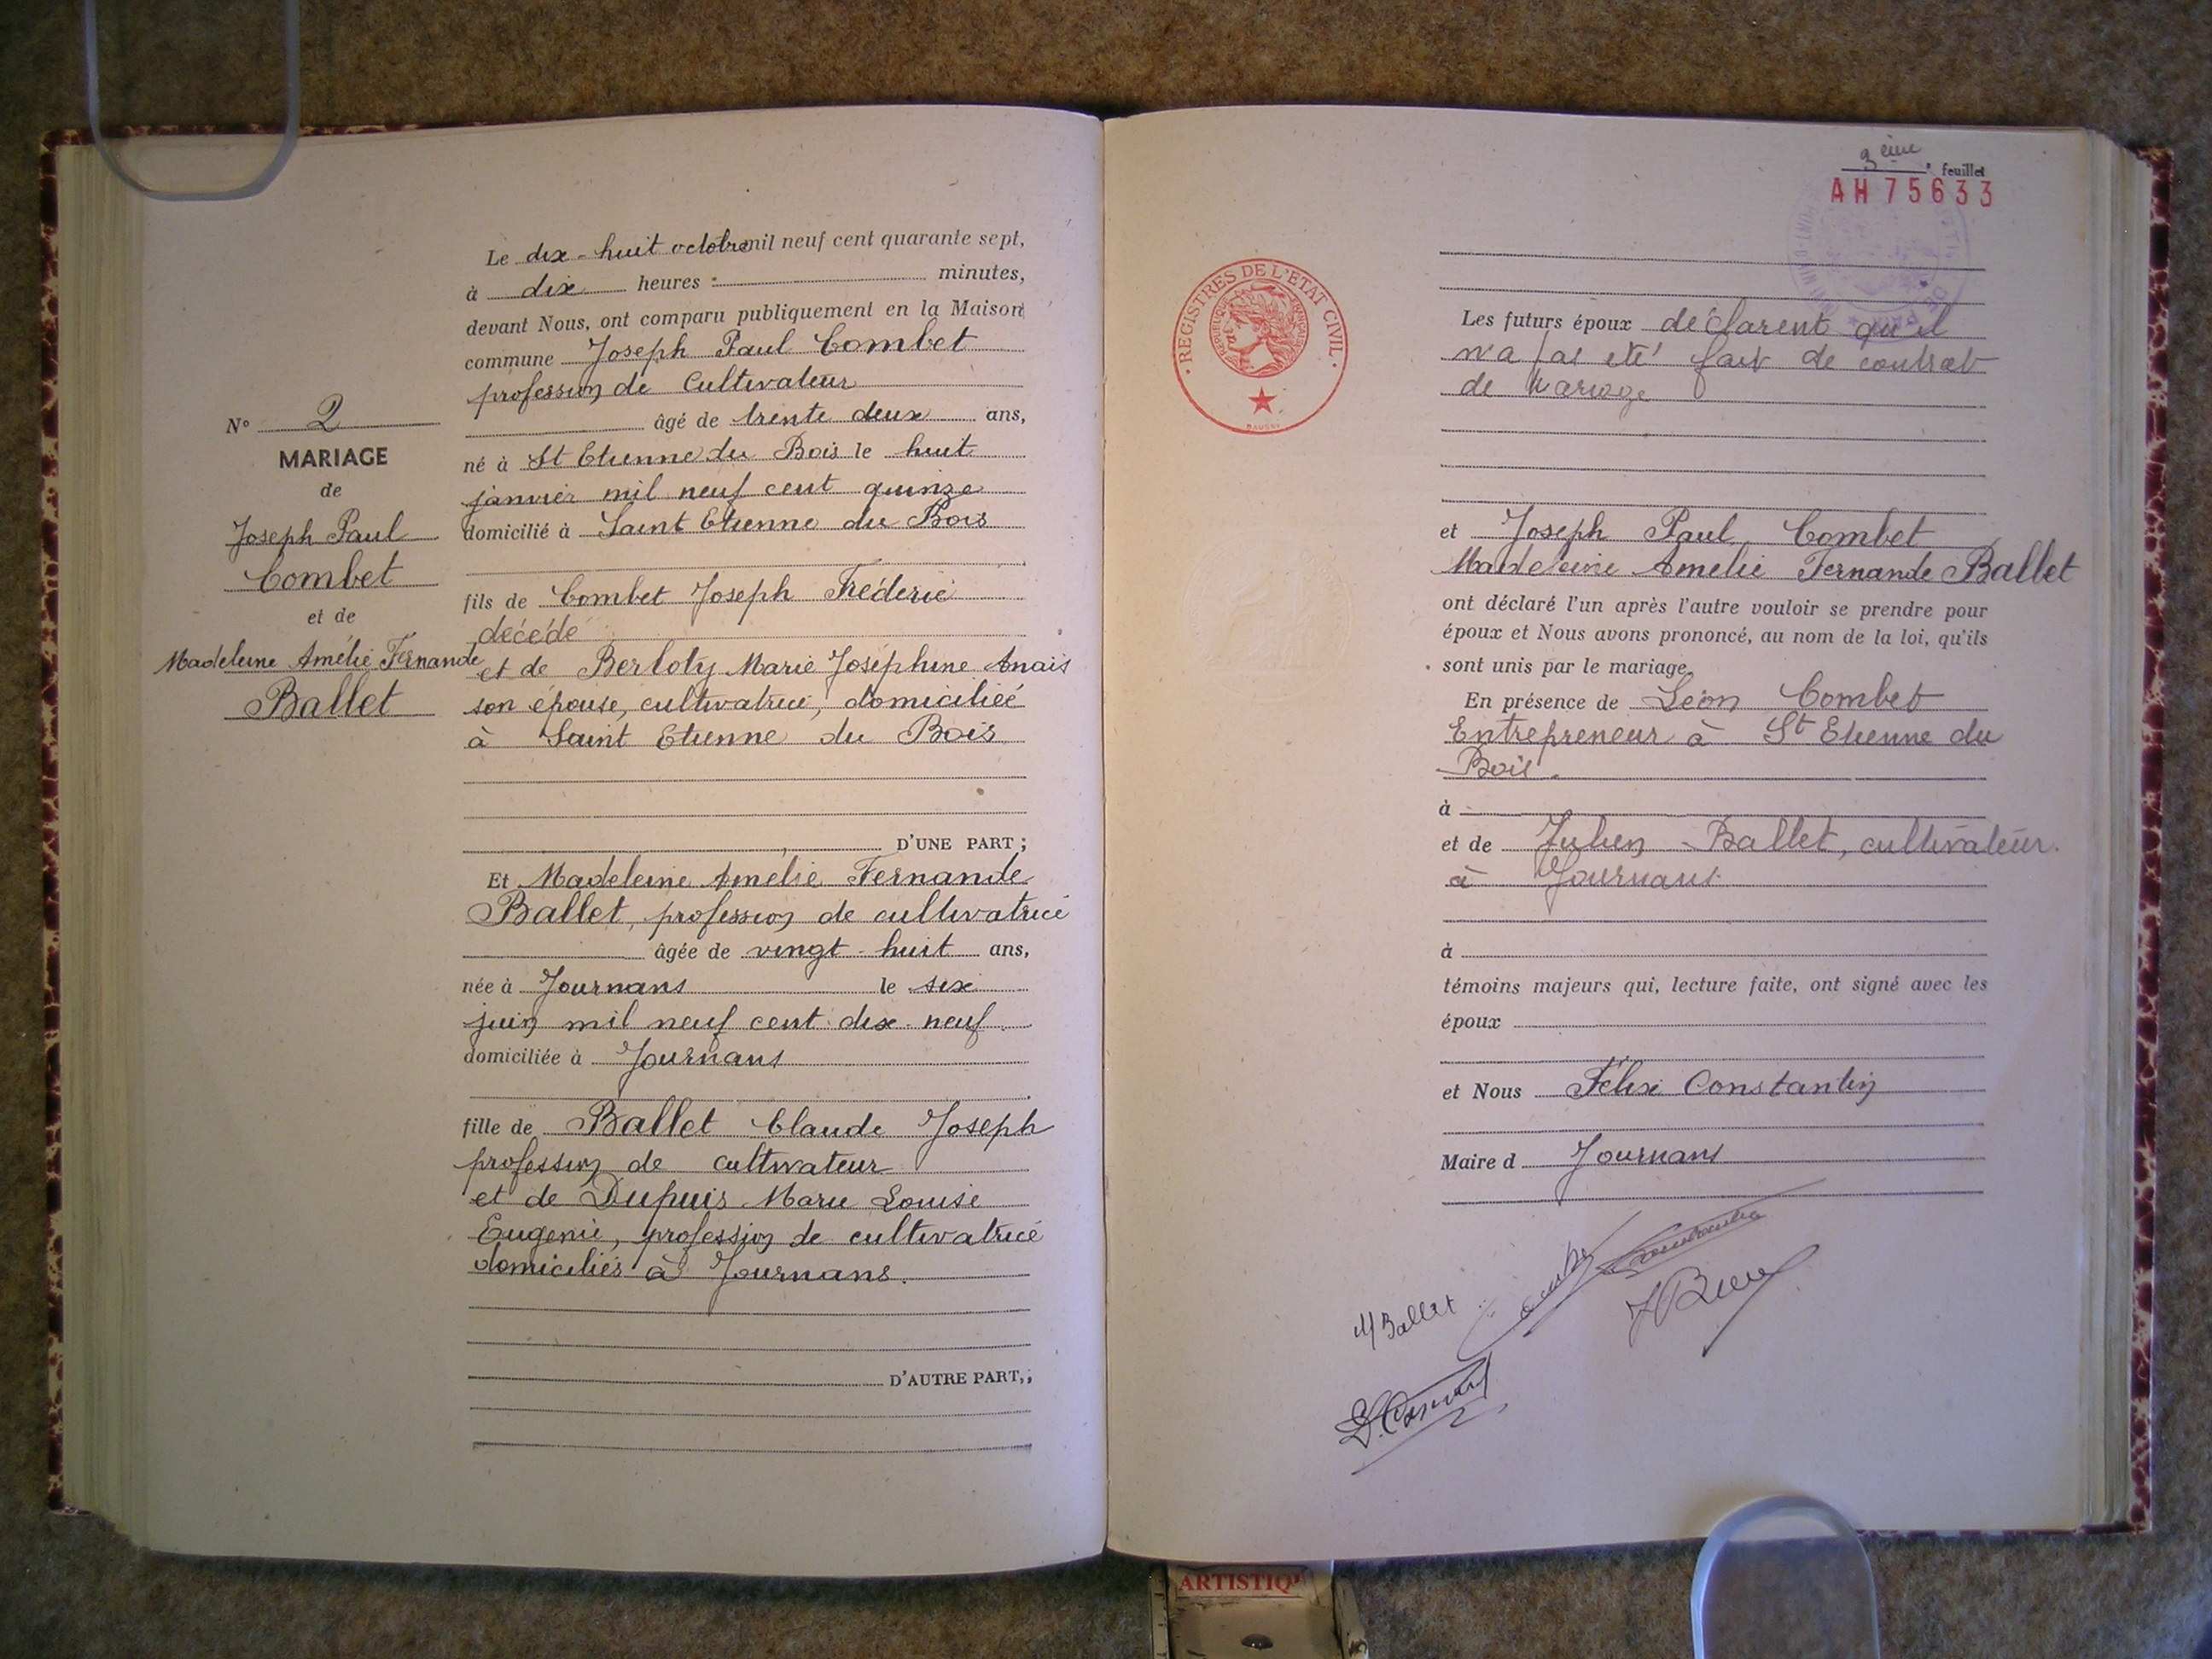 Le dix-huit octobre mil neuf cent quarante sept,
à dix heures minutes,
devant Nous, ont comparu publiquement en la Maison
commune Joseph Paul Combet
profession de Cultivateur
âgé de trente deux ans,
né à St Etienne du Bois le huit
janvier mil neuf cent quinze
domicilié à Saint Etienne du Bois
fils de Combet Joseph Frédéric
décédé
et de Berloty Marie Joséphine Anais
son épouse, cultivatrice, domiciliée
à Saint Etienne du Bois
D'UNE PART ;
Et Madeleine Amélie Fernande
Ballet, profession de cultivatrice
âgée de vingt-huit ans,
née à Journans le six
juin mil neuf cent dix-neuf
domiciliée à Journans
fille de Ballet Claude Joseph
profession de cultivateur
et de Dupuis Marie Louise
Eugenie, profession de cultivatrice
domiciliés à Journans.
D'AUTRE PART,;
N° 2
MARIAGE
de
Joseph Paul
Combet
et de
Madeleine Amélie Fernande
Ballet
3ème feuillet
AH 75633
REGISTRES DE L'ETAT CIVIL
REPUBLIQUE FRANÇAISE
Les futurs époux déclarent qu'il
n'a pas été fait de contrat
de Mariage
et Joseph Paul Combet
Madeleine Amelie Fernande Ballet
ont déclaré l'un après l'autre vouloir se prendre pour
époux et Nous avons prononcé, au nom de la loi, qu'ils
sont unis par le mariage.
En présence de Léon Combet
Entrepreneur à St Etienne du
Bois.
à
et de Julien Ballet, cultivateur.
à Journans
à
témoins majeurs qui, lecture faite, ont signé avec les
époux
et Nous Félix Constantin
Maire d Journans
M Ballet
ARTISTIQ